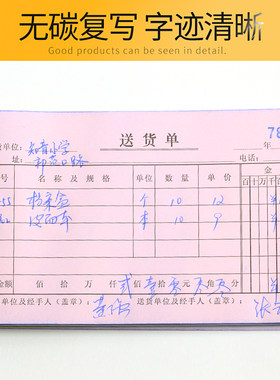 无碳复写 字迹清晰
Good products can be seen everywhere
送货单
货单位: 知音小学
址: 电话:
号 名称及规格 单位 数量 单价 金
百 十 万 千
55 档案盒 个 10 12
皮面本 本 10 9
金额 佰 拾 万 仟 贰佰壹拾零元零角零分
单位及经手人(盖章): 送货单位及经手人(盖章):